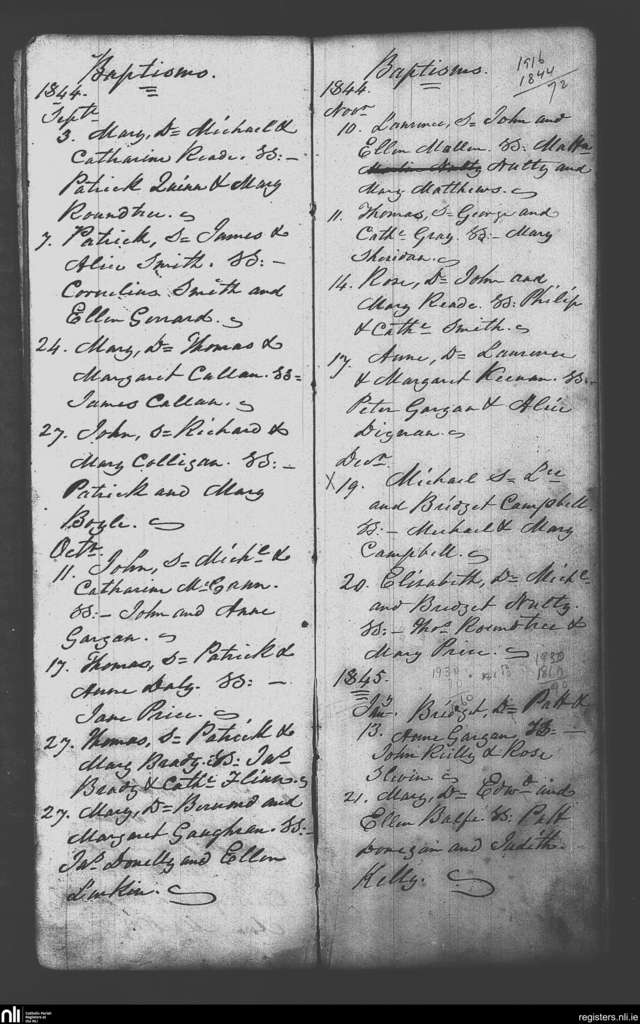 Baptisms.
1844.
Septr
3. Mary, D= Michael &
Catharine Reade. SS: –
Patrick Quinn & Mary
Roundtree.
7. Patrick, S= James &
Alice Smith. SS: –
Cornelius Smith and
Ellen Gonard.
24. Mary, D= Thomas &
Margaret Callan. SS=
James Callan.
27. John, S= Richard &
Mary Colligan. SS: –
Patrick and Mary
Boyle.
Octr.
11. John, S= Michl &
Catharine McGann.
SS: – John and Anne
Gargan.
17. Thomas, S= Patrick &
Anne Daly. SS: –
Jane Price.
27. Thomas, S= Patrick &
Mary Brady. SS: Jas
Brady & Cathe Flinn.
27. Mary, D= Bernard and
Margaret Gaughran. SS: –
Jas Donelly and Ellen
Larkin.
Baptisms.
1916
1844
72
1844.
Novr
10. Laurence, S= John and
Ellen Mallen. SS: Matthw
Nutty and
Mary Matthews.
11. Thomas, S= George and
Cathe Gray. SS: – Mary
Sheridan.
14. Rose, D= John and
Mary Reade. SS: Philip
& Cathe Smith.
17. Anne, D= Laurence
& Margaret Keenan. SS: –
Peter Gargan & Alice
Dignan.
Decr.
X 19. Michael S= Lce
and Bridget Campbell.
SS: – Michael & Mary
Campbell.
20. Elizabeth, D= Michl
and Bridget Nutty.
SS: – Thos Roundtree &
Mary Price.
1845.
1930
1930
Jany. Bridget, D= Patt &
13. Anne Gargan. SS: –
John Reilly & Rose
Slevin.
21. Mary, D= Edwd and
Ellen Balfe. SS: Patt
Donegan and Judith
Kelly.
nli
Catholic Parish
Registers at
the NLI
registers.nli.ie